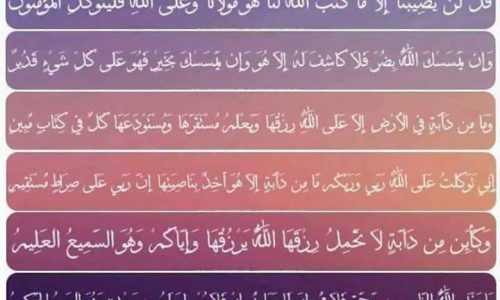 قُل لَن يُصيبَنا إِلّا ما كَتَبَ اللَّهُ لَنا هُوَ مَولانا وَعَلَى اللَّهِ فَليَتَوَكَّلِ المُؤمِنونَ
وَإِن يَمسَسكَ اللَّهُ بِضُرٍّ فَلا كاشِفَ لَهُ إِلّا هُوَ وَإِن يَمسَسكَ بِخَيرٍ فَهُوَ عَلى كُلِّ شَيءٍ قَديرٌ
وَما مِن دابَّةٍ فِي الأَرضِ إِلّا عَلَى اللَّهِ رِزقُها وَيَعلَمُ مُستَقَرَّها وَمُستَودَعَها كُلٌّ في كِتابٍ مُبينٍ
إِنّي تَوَكَّلتُ عَلَى اللَّهِ رَبّي وَرَبِّكُم ما مِن دابَّةٍ إِلّا هُوَ آخِذٌ بِناصِيَتِها إِنَّ رَبّي عَلى صِراطٍ مُستَقيمٍ
وَكَأَيِّن مِن دابَّةٍ لا تَحمِلُ رِزقَهَا اللَّهُ يَرزُقُها وَإِيّاكُم وَهُوَ السَّميعُ العَليمُ